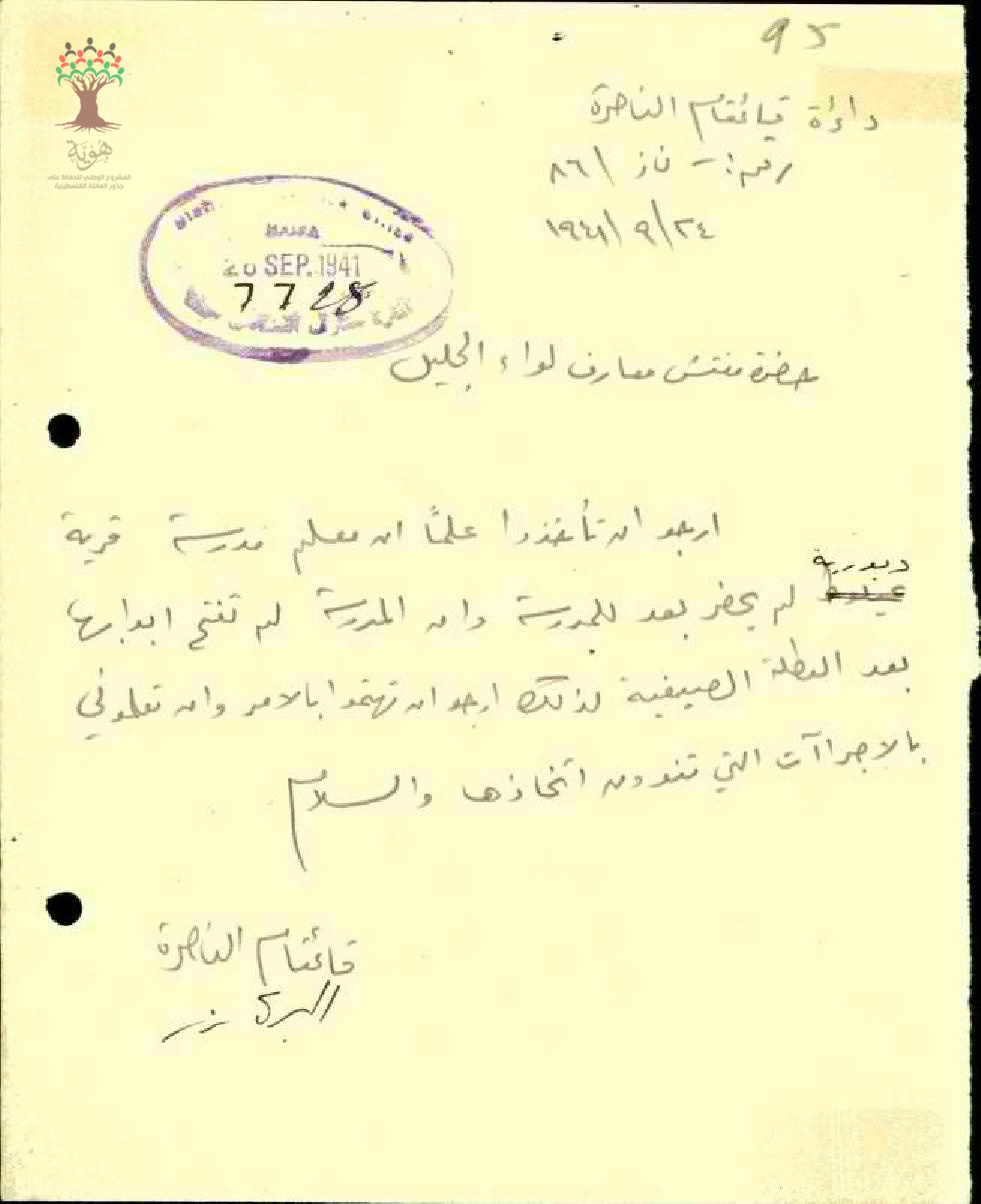 95
هوية
المشروع الوطني للحفاظ على
جذور العائلة الفلسطينية
دائرة قيائمقام الناصرة
رقم :- ناز /٨٦
١٩٤١/٩/٢٤
HAIFA
SEP. 1941
7728
حضرة مفتش معارف لواء الجليل
ارجو ان تأخذوا علماً ان معلم مدرسة قرية
دبورية
لم يحضر بعد للمدرسة وان المدرسة لم تفتح ابوابها
بعد العطلة الصيفية لذلك ارجو ان تهتموا بالامر وان تعلموني
بالاجراآت التي تنوون اتخاذها والسلام
قائمقام الناصرة